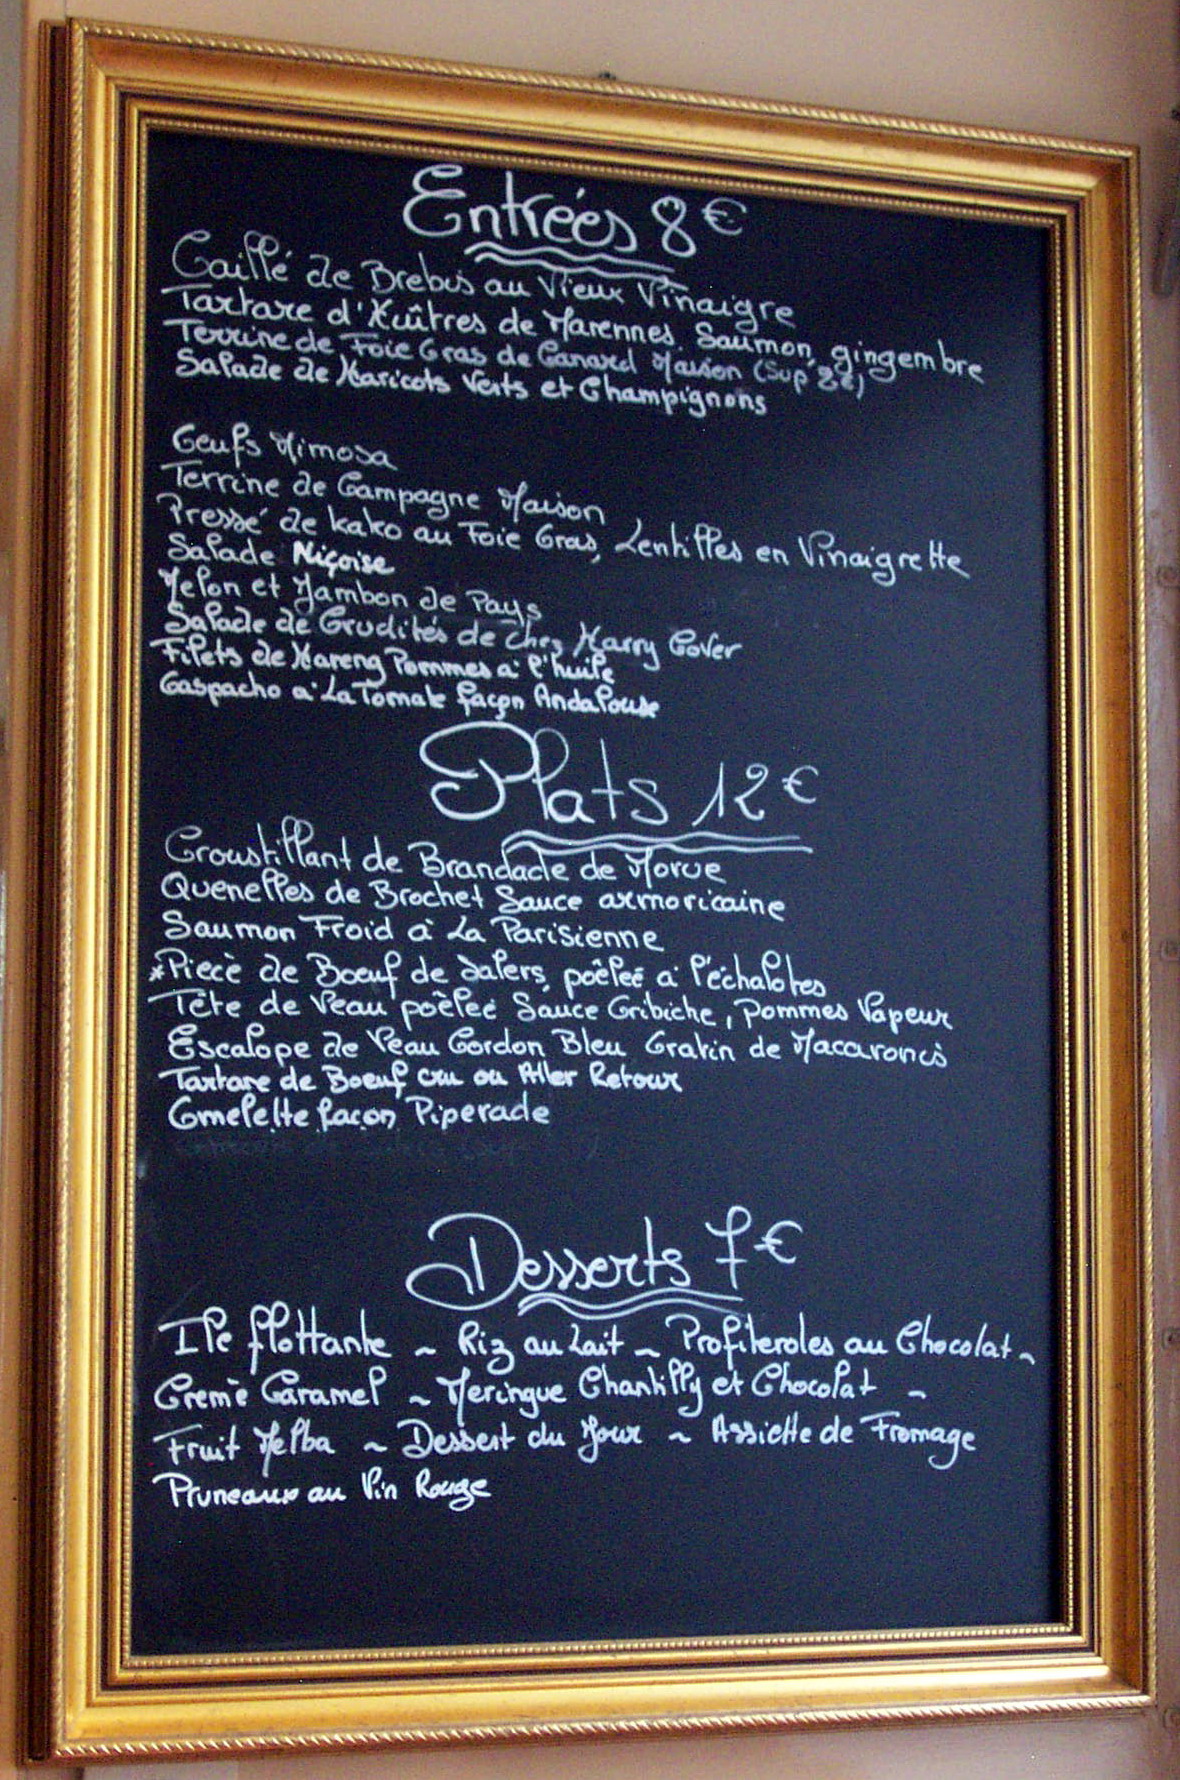 Entrées 8€
Caillé de Brebis au Vieux Vinaigre
Tartare d'Huîtres de Marennes, Saumon, gingembre
Terrine de Foie Gras de Canard Maison (Sup 2€)
Salade de Haricots Verts et Champignons
Oeufs Mimosa
Terrine de Campagne Maison
Pressé de kako au Foie Gras, Lentilles en Vinaigrette
Salade Niçoise
Melon et Jambon de Pays
Salade de Crudités de chez Harry Cover
Filets de Hareng Pommes à l'huile
Gaspacho à La Tomate façon Andalouse
Plats 12€
Croustillant de Brandade de Morue
Quenelles de Brochet Sauce armoricaine
Saumon Froid à La Parisienne
*Pièce de Boeuf de Salers, poêlée à l'échalotes
Tête de Veau poêlée Sauce Gribiche, Pommes Vapeur
Escalope de Veau Cordon Bleu Gratin de Macaronis
Tartare de Boeuf cru ou Aller Retour
Omelette façon Piperade
Desserts 7€
Ile flottante ~ Riz au Lait ~ Profiteroles au Chocolat ~
Creme Caramel ~ Meringue Chantilly et Chocolat ~
Fruit Melba ~ Dessert du Jour ~ Assiette de Fromage
Pruneaux au Vin Rouge